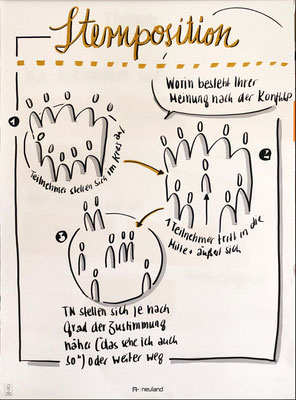 Sternposition
Worin besteht Ihrer
Meinung nach der Konflikt?
1
Teilnehmer stellen sich im Kreis auf
2
1 Teilnehmer tritt in die
Mitte + äußert sich
3
TN stellen sich je nach
Grad der Zustimmung
näher ("das sehe ich auch
so") oder weiter weg
neuland